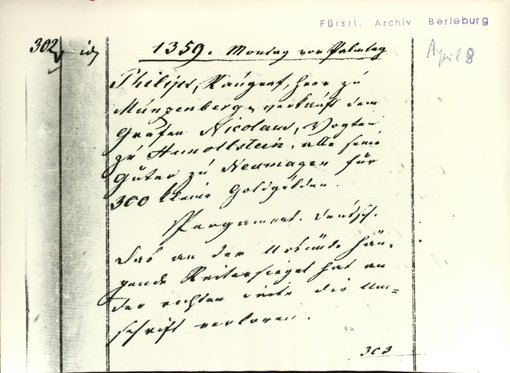 Fürstl. Archiv Berleburg
April 8
302 id
1359. Montag vor Palmtag
Philips, Raugraf, Herr zu
Munzenberg, verkauft dem
Grafen Nicolaus, Vogten
zu Hunoltstein, alle seine
Güter zu Neumagen für
300 kleine Goldgülden.
Pergament. Deutsch.
Das an der Urkunde hän-
gende Reitersiegel hat an
der rechten Seite die Um-
schrift verloren.
303